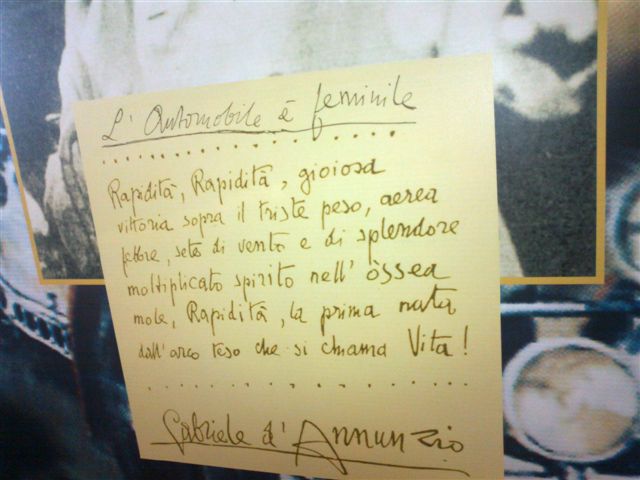 L' Automobile è feminile
Rapidità, Rapidità, gioiosa
vittoria sopra il triste peso, aerea
febbre, sete di vento e di splendore
moltiplicato spirito nell' òssea
mole, Rapidità, la prima nata
dall'arco teso che si chiama Vita!
Gabriele d' Annunzio